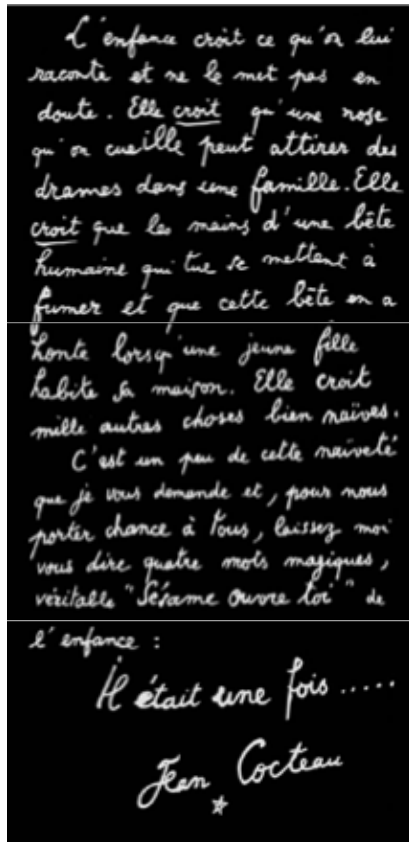 L'enfance croit ce qu'on lui
raconte et ne le met pas en
doute. Elle croit qu'une rose
qu'on cueille peut attirer des
drames dans une famille. Elle
croit que les mains d'une bête
humaine qui tue se mettent à
fumer et que cette bête en a
honte lorsqu'une jeune fille
habite sa maison. Elle croit
mille autres choses bien naïves.
C'est un peu de cette naïveté
que je vous demande et, pour nous
porter chance à tous, laissez moi
vous dire quatre mots magiques,
véritable "Sésame ouvre toi" de
l'enfance :
Il était une fois .....
Jean Cocteau